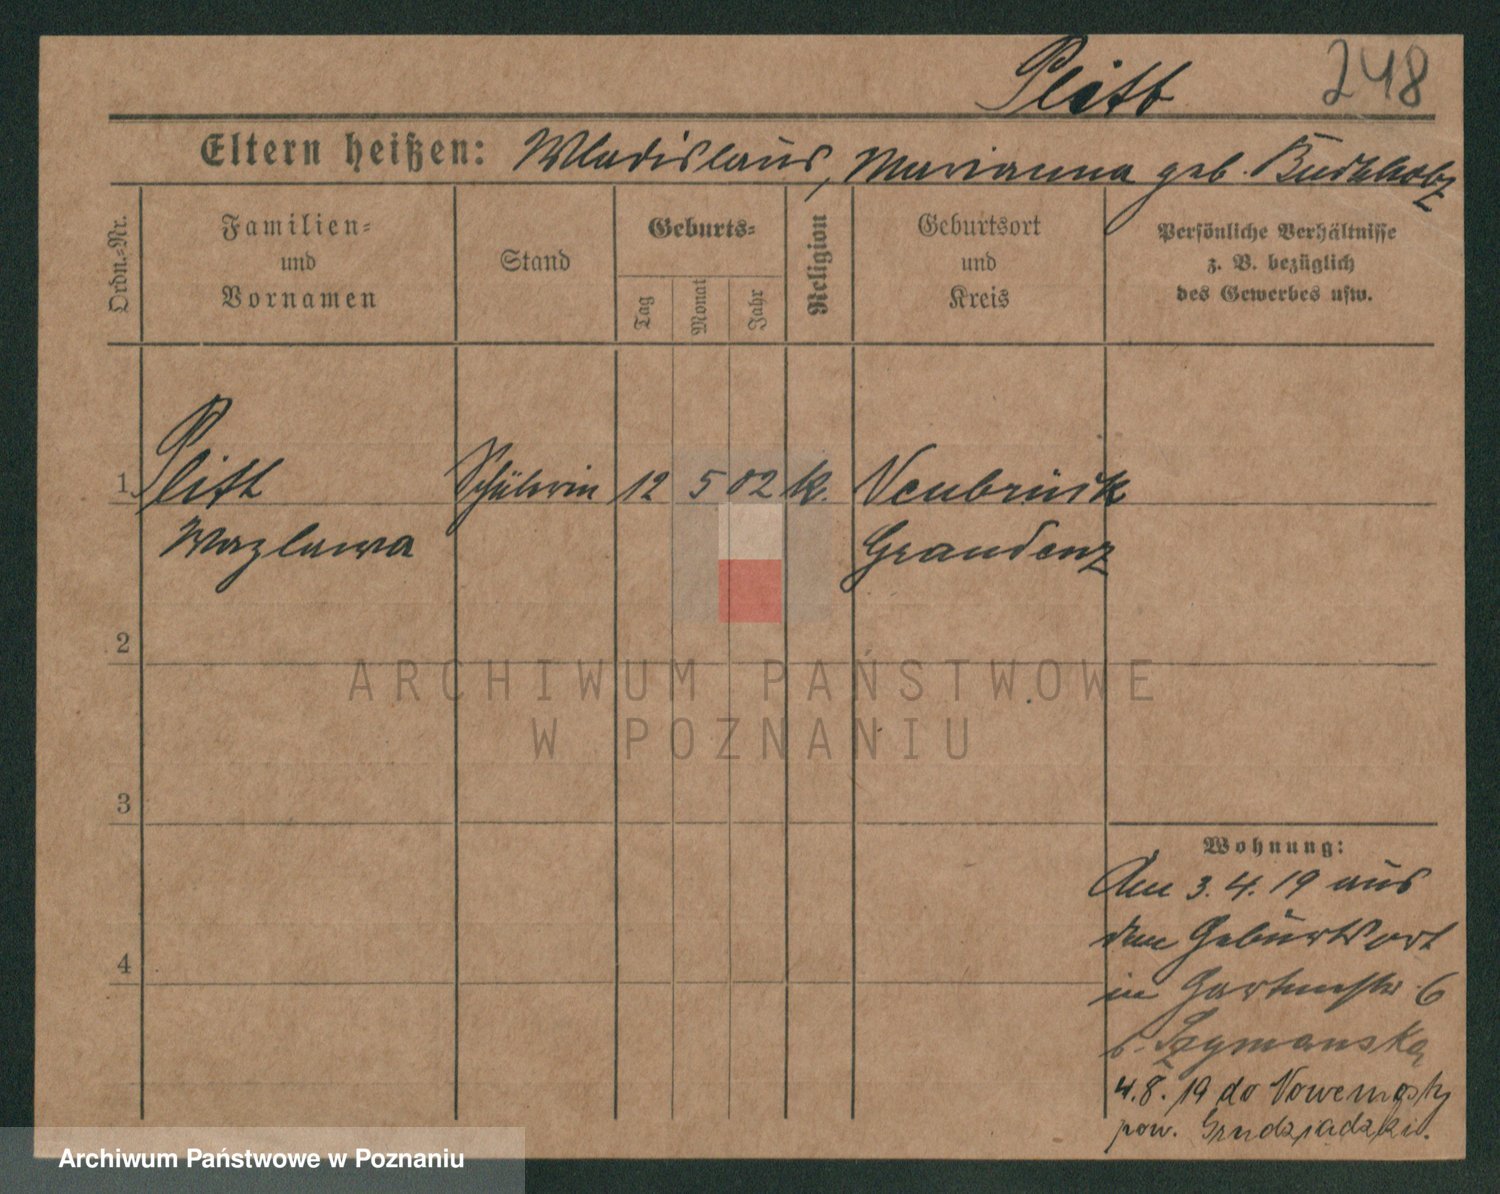 Plith 248
Eltern heißen: Wladislaus, Marianna geb. Buchholz
Ordn.-Nr.
Familien-
und
Vornamen
Stand
Geburts-
Tag
Monat
Jahr
Religion
Geburtsort
und
Kreis
Persönliche Verhältnisse
z. B. bezüglich
des Gewerbes usw.
1 Plith Schülerin 12 5 02 k. Neubrück
Wazlawa Graudenz
2
3
4
Wohnung:
Am 3.4.19 aus
dem Geburtsort
in Gartenstr. 6
b. Szymanska
4.8.19 do Nowemosty
pow. Grudziądzki.
ARCHIWUM PAŃSTWOWE
W POZNANIU
Archiwum Państwowe w Poznaniu